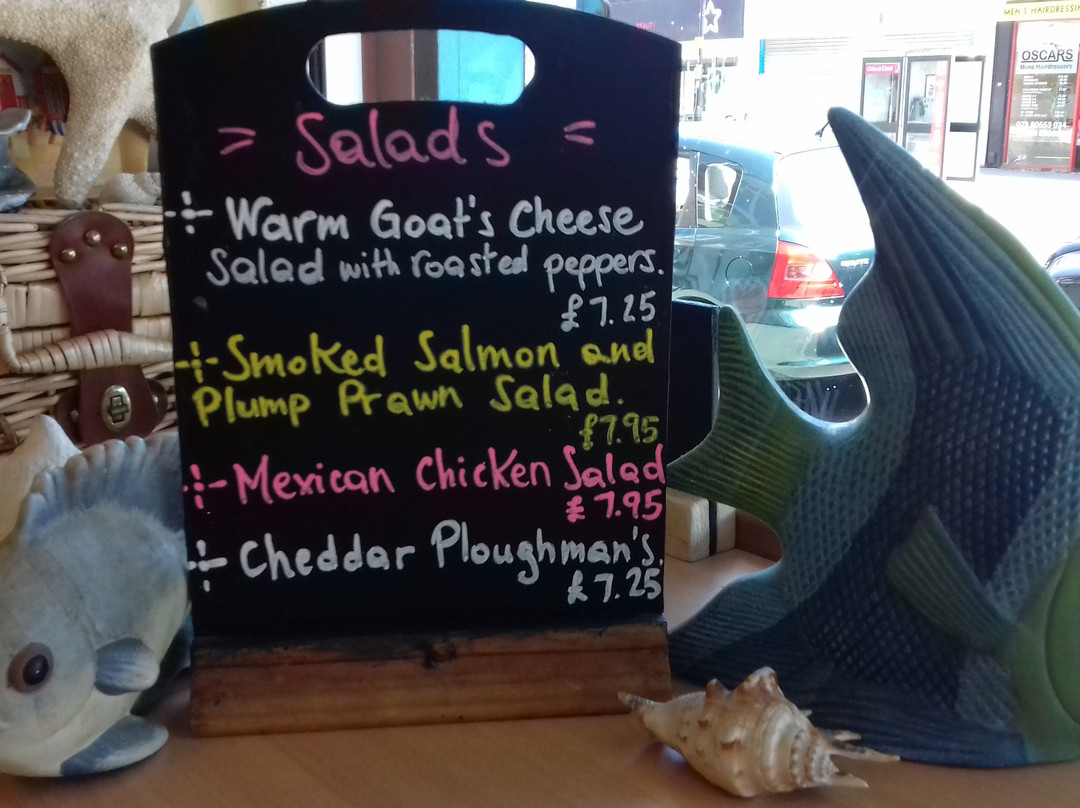 = Salads =
Warm Goat's Cheese
Salad with roasted peppers.
£7.25
Smoked Salmon and
Plump Prawn Salad.
£7.95
Mexican Chicken Salad
£7.95
Cheddar Ploughman's.
£7.25
BEAUTY
MEN'S HAIRDRESSING
OSCARS
Mens Hairdressers